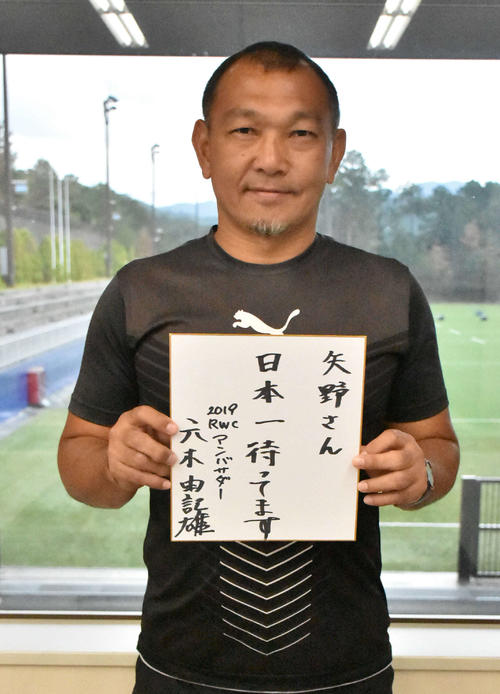 矢野さん
日本一待ってます
2019
RWC アンバサダー
六木由記雄